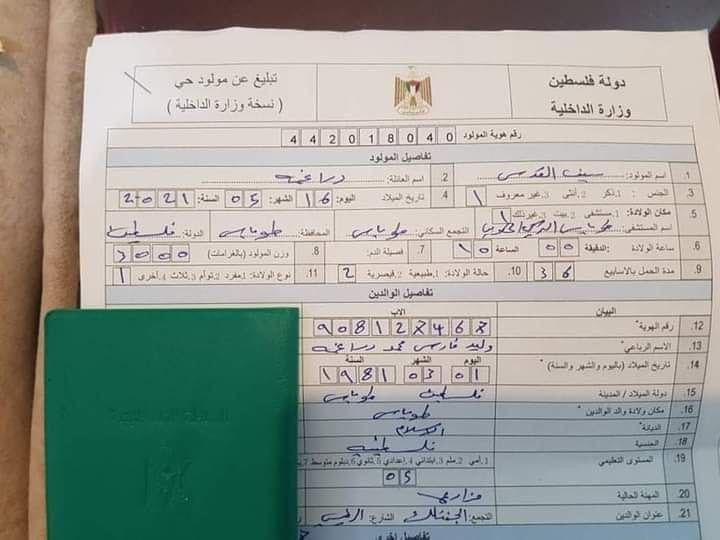 دولة فلسطين
وزارة الداخلية
تبليغ عن مولود حي
( نسخة وزارة الداخلية )
رقم هوية المولود 4 4 2 0 1 8 0 4 0
تفاصيل المولود
1. اسم المولود: سيف القدس 2. اسم العائلة: دراغمه
3. الجنس: 1.ذكر 2.أنثى 3.غير معروف 1 4. تاريخ الميلاد اليوم: 16 الشهر: 05 السنة: 2021
5. مكان الولادة: 1.مستشفى 2.بيت 3.غير ذلك 1
اسم المستشفى: طوباس التركي الحكومي التجمع السكاني: طوباس المحافظة: طوباس الدولة: فلسطين
6. ساعة الولادة: الدقيقة 00 الساعة 10 7. فصيلة الدم: 8. وزن المولود (بالغرامات) 3000
9. مدة الحمل بالأسابيع 36 10. حالة الولادة: 1.طبيعية 2.قيصرية 2 11. نوع الولادة: 1.مفرد 2.توأم 3.ثلاث 4.أخرى 1
تفاصيل الوالدين
البيان الاب
12. رقم الهوية*
13. الاسم الرباعي* وليد فارس محمد دراغمه
14. تاريخ الميلاد (باليوم والشهر والسنة)* اليوم 01 الشهر 03 السنة 1981
15. دولة الميلاد / المدينة فلسطين طوباس
16. مكان ولادة والد الوالدين* طوباس
17. الديانة* الإسلام
18. الجنسية فلسطينية
19. المستوى التعليمي 1.أمي 2.ملم 3.ابتدائي 4.إعدادي 5.ثانوي 6.دبلوم متوسط
05
20. المهنة الحالية مزارع
21. عنوان الوالدين التجمع: الجفتلك الشارع:
تفاصيل اخرى